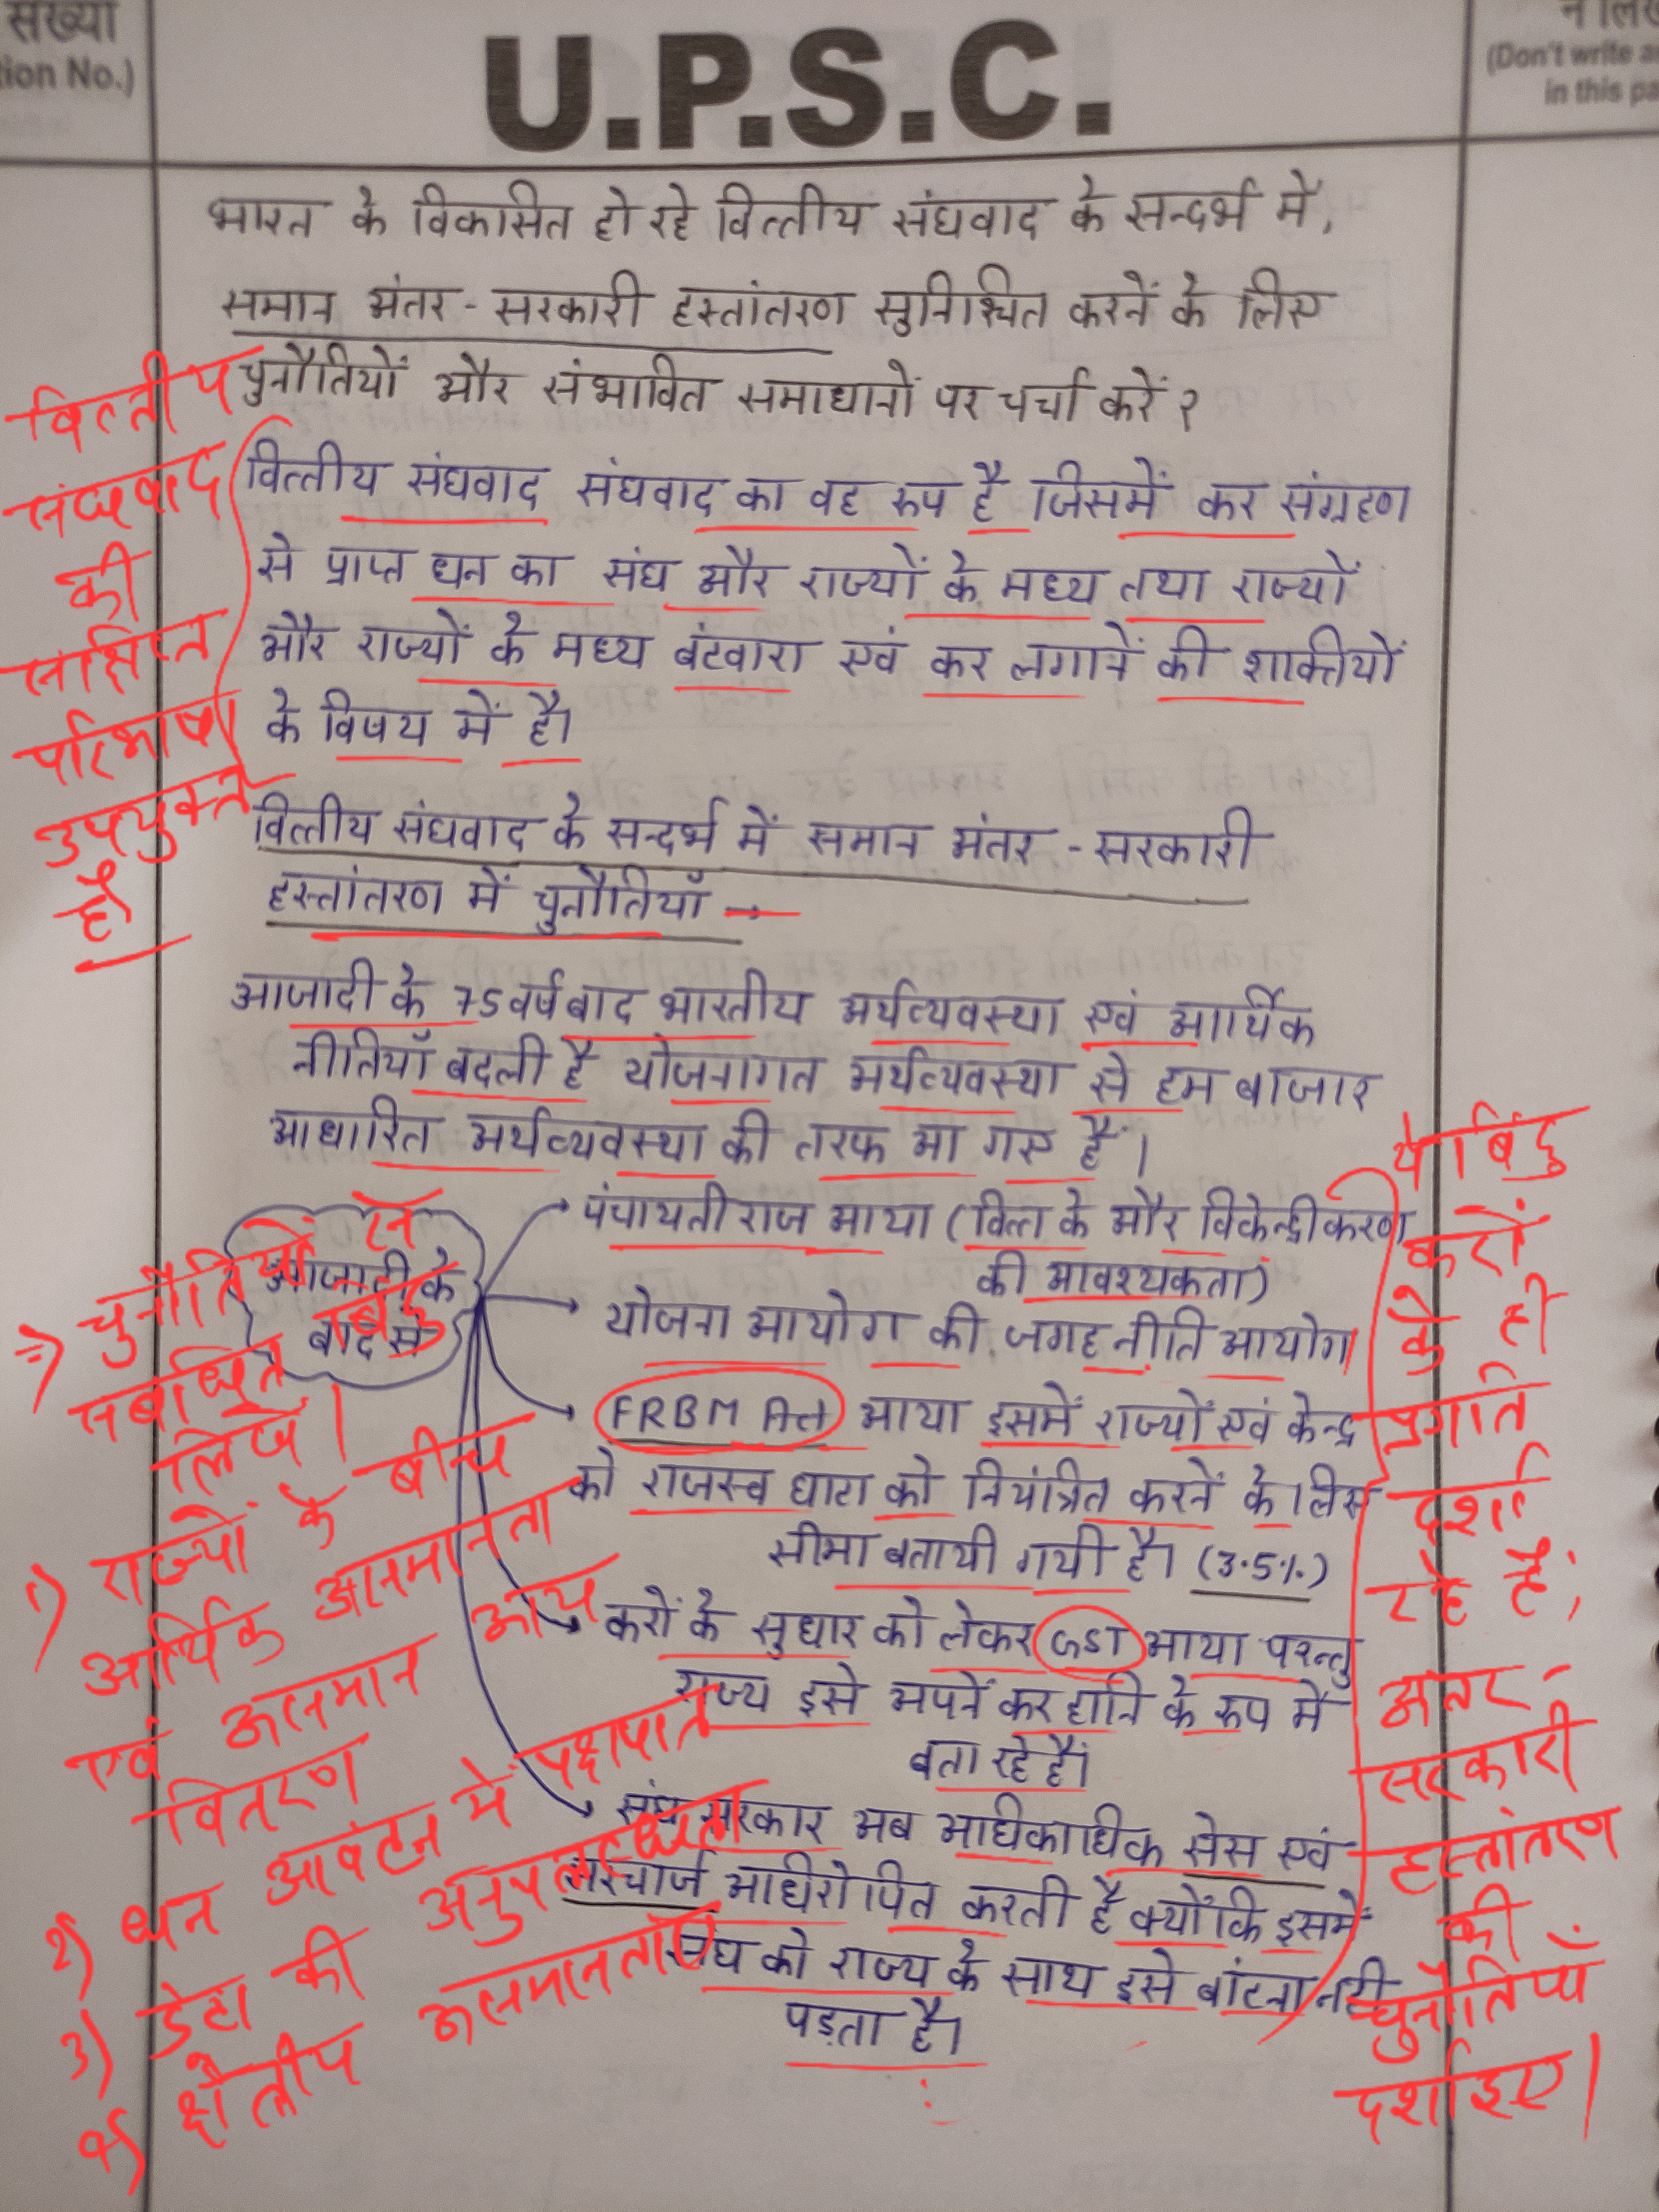 संख्या
tion No.)
U.P.S.C.
न लिख
(Don't write a
in this pa
भारत के विकासित हो रहे वित्तीय संघवाद के सन्दर्भ में,
समान अंतर - सरकारी हस्तांतरण सुनिश्चित करनें के लिए
चुनौतियों और संभावित समाधानों पर चर्चा करें ?
वित्तीय
संघवाद
की
संक्षिप्त
परिभाषा
उपयुक्त
है
वित्तीय संघवाद संघवाद का वह रूप है जिसमें कर संग्रहण
से प्राप्त धन का संघ और राज्यों के मध्य तथा राज्यों
और राज्यों के मध्य बंटवारा एवं कर लगानें की शाक्तियों
के विषय में है।
वित्तीय संघवाद के सन्दर्भ में समान अंतर - सरकारी
हस्तांतरण में चुनौतियाँ →
आजादी के 75 वर्ष बाद भारतीय अर्थव्यवस्था एवं आर्थिक
नीतियाँ बदली है योजनागत अर्थव्यवस्था से हम बाजार
आधारित अर्थव्यवस्था की तरफ आ गए हैं।
आजादी के
बाद से
पंचायती राज आया (वित्त के और विकेन्द्रीकरण
की आवश्यकता)
योजना आयोग की जगह नीति आयोग
FRBM Act आया इसमें राज्यों एवं केन्द्र
को राजस्व घाटा को नियंत्रित करनें के लिए
सीमा बतायी गयी है। (3.5%)
करों के सुधार को लेकर GST आया परन्तु
राज्य इसे अपनें कर हानि के रूप में
बता रहे हैं।
संघ सरकार अब अधिकाधिक सेस एवं
सरचार्ज आधिरोपित करती है क्योंकि इसमें
संघ को राज्य के साथ इसे बांटना नही
पड़ता है।
⇒ चुनौतियों से
संबंधित बिंदु
लिखें।
1) राज्यों के बीच
आर्थिक असमानता
एवं असमान आय
वितरण
2) धन आवंटन में पक्षपात
3) डेटा की अनुपलब्धता
4) क्षेत्रीय असमानताएं
ये बिंदु
करों
के ही
प्रगति
दर्शा
रहे हैं;
अंतर-
सरकारी
हस्तांतरण
की
चुनौतियाँ
दर्शाइए।